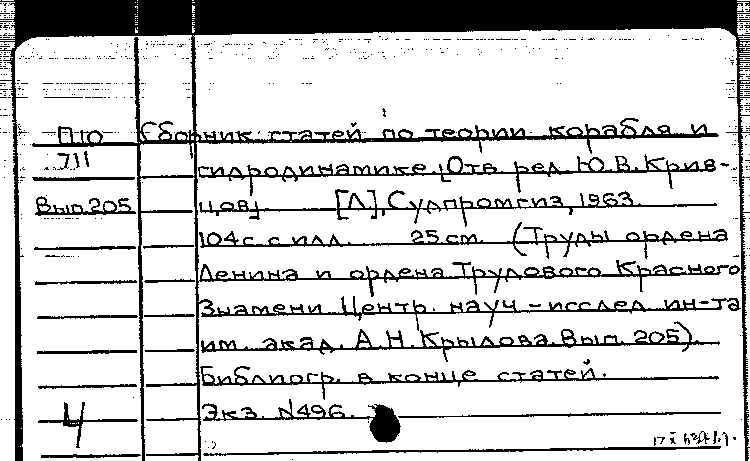 П10 Сборник статей по теории корабля и
711 гидродинамике. [Отв. ред. Ю.В. Крив-
Вып. 205 цов]. [Л], Судпромгиз, 1963.
104 с. с илл. 25 см. (Труды ордена
Ленина и ордена Трудового Красного
Знамени Центр. науч.-исслед. ин-та
им. акад. А.Н. Крылова. Вып. 205).
Библиогр. в конце статей.
4 Экз. N496.